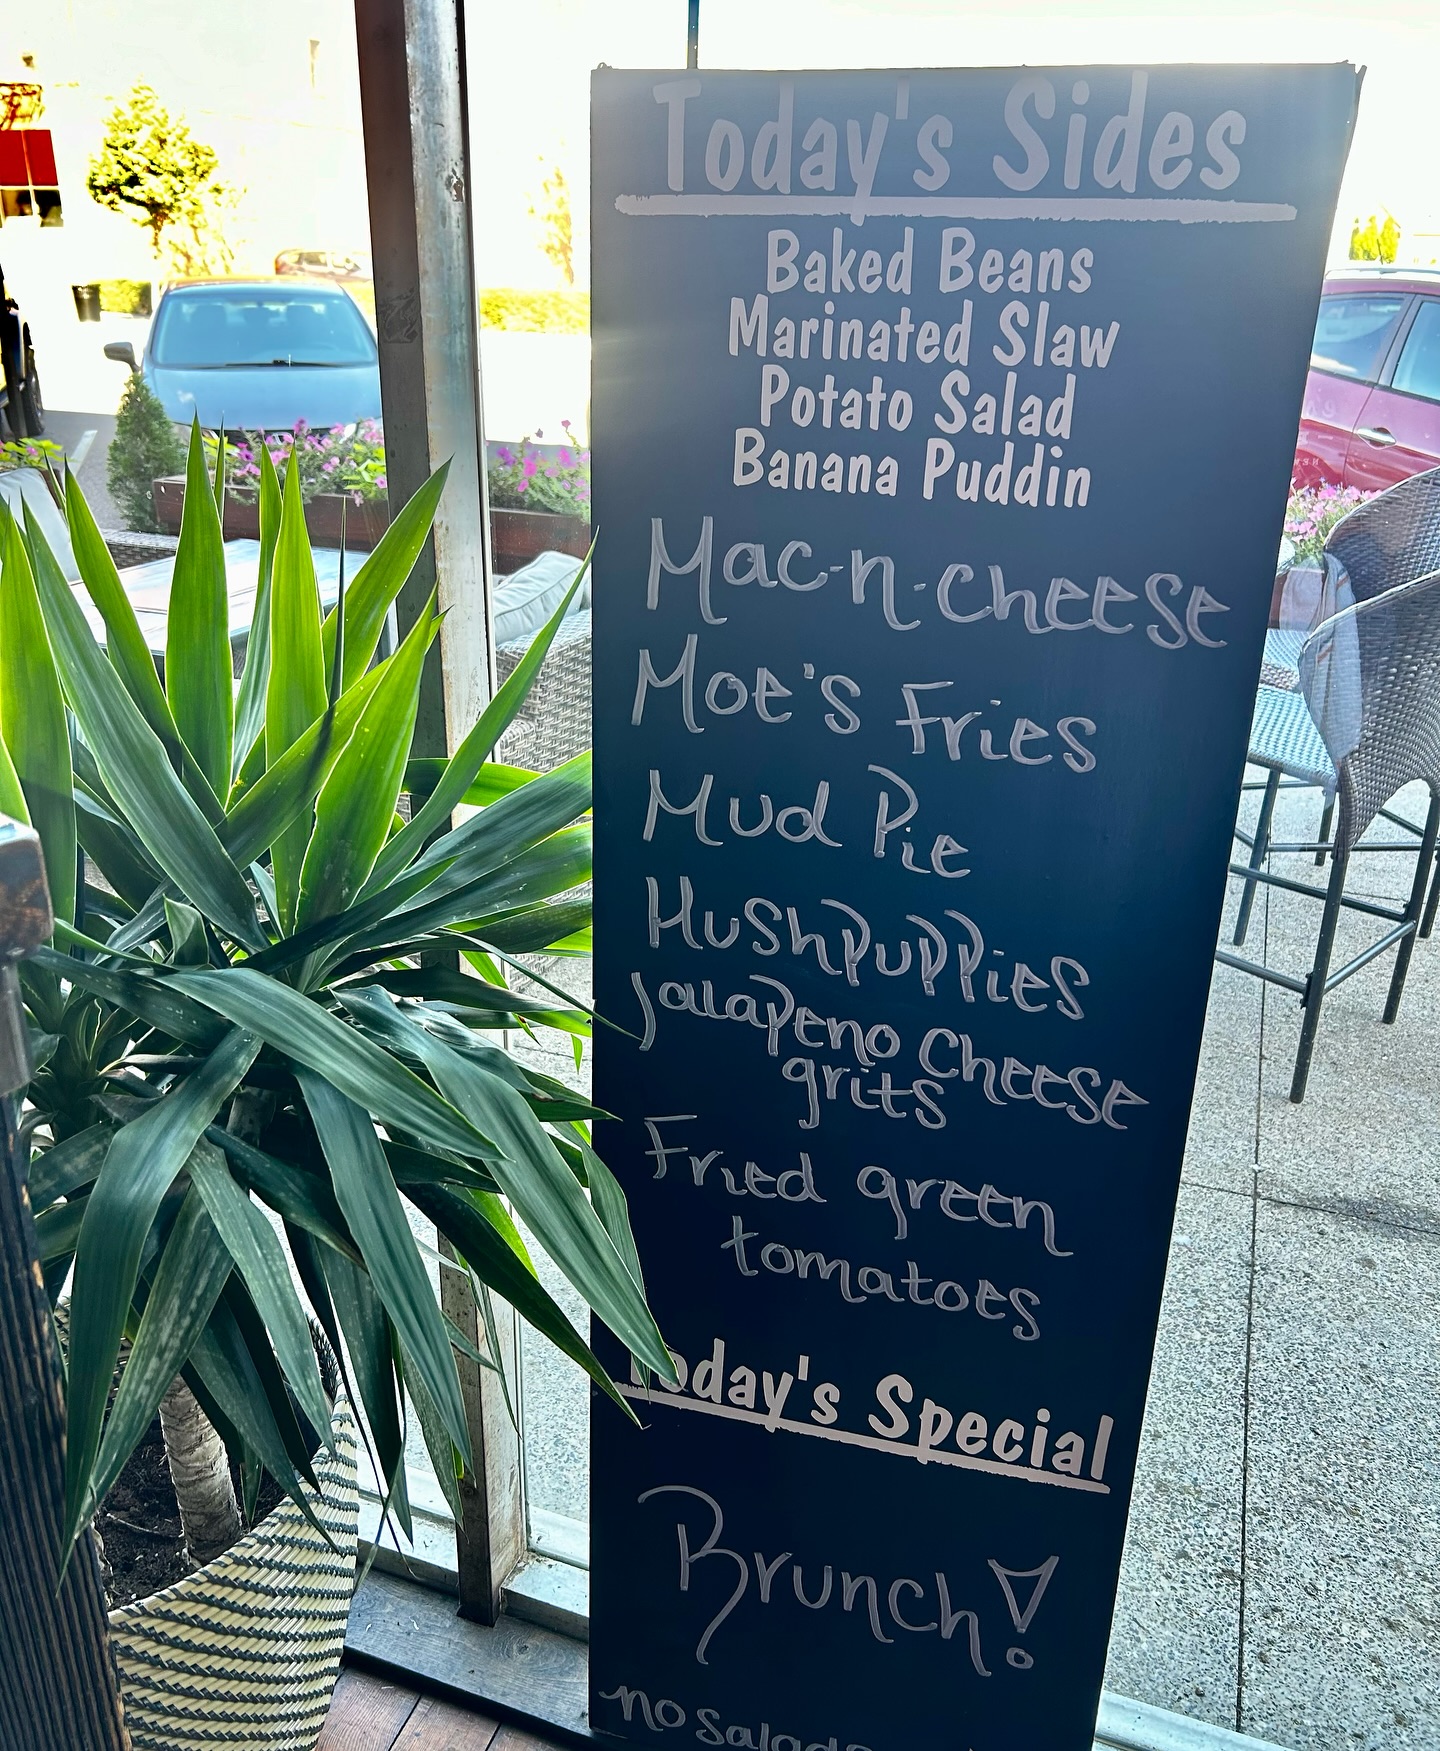 Today's Sides
Baked Beans
Marinated Slaw
Potato Salad
Banana Puddin
Mac-n-cheese
Moe's Fries
Mud Pie
Hushpuppies
Jalapeno Cheese
grits
Fried green
tomatoes
Today's Special
Brunch!
no